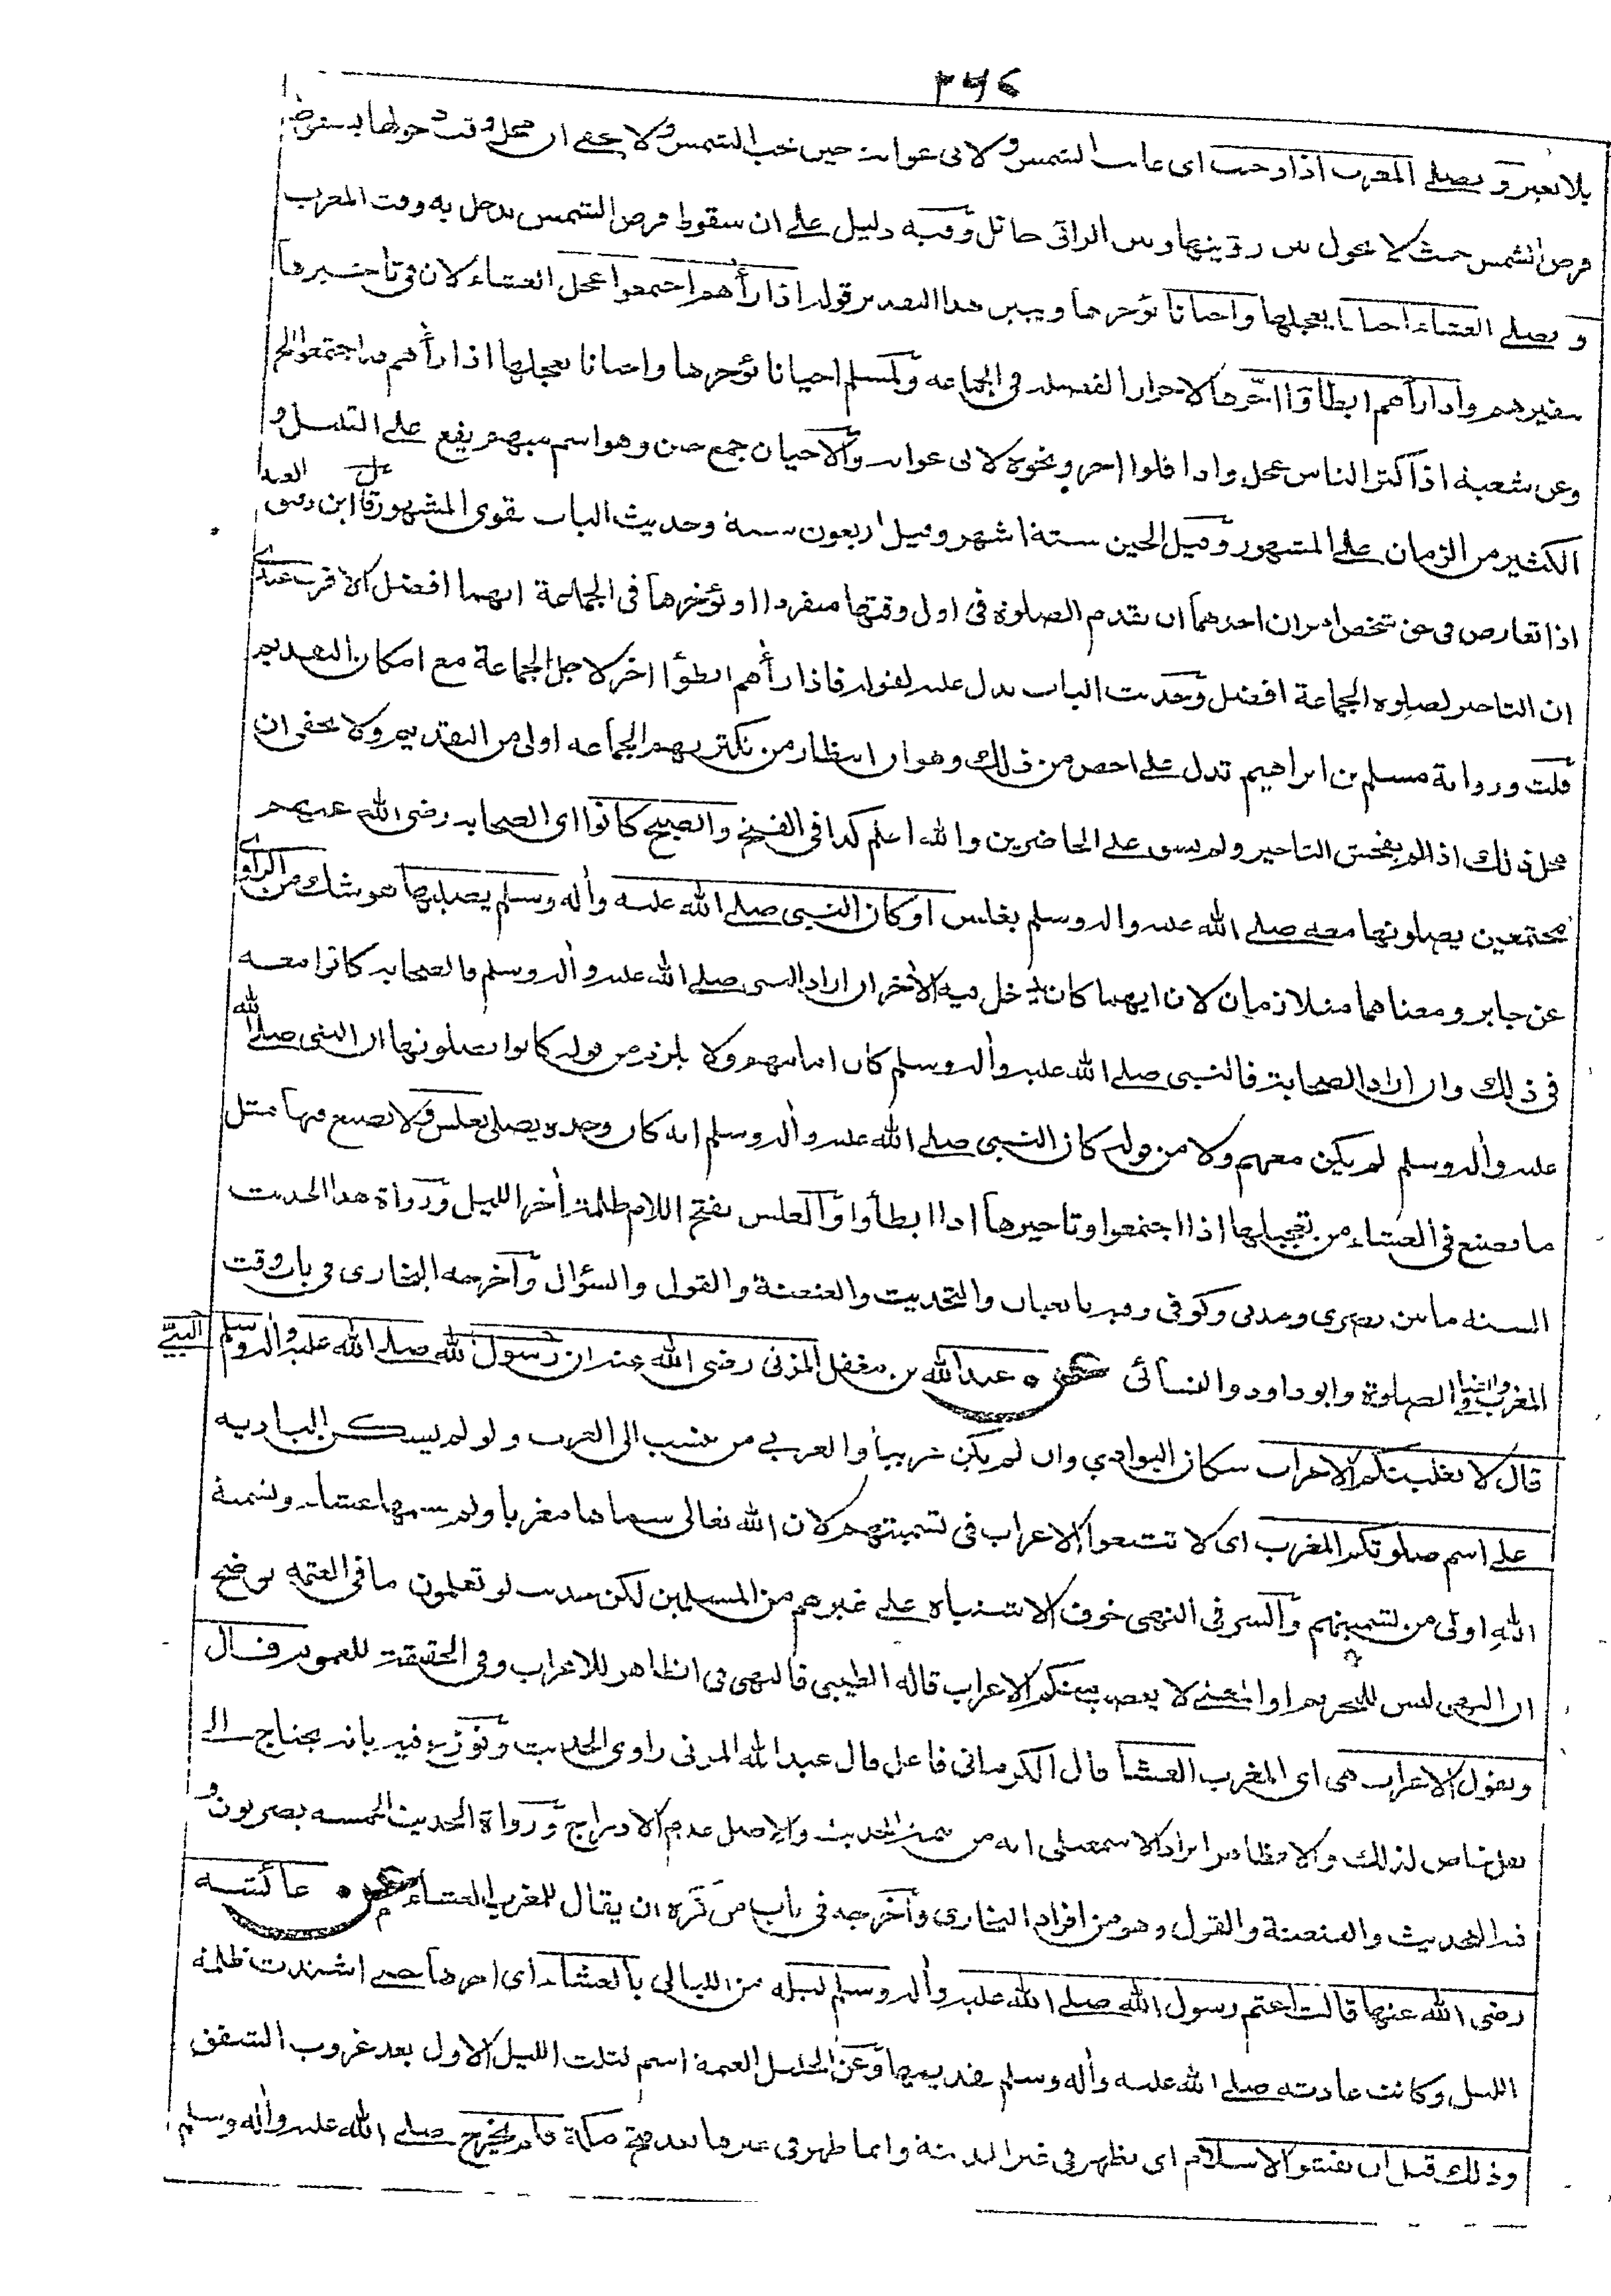 ٢٤٦
بلا تغير و يصلي المغرب اذا وجبت اى غابت الشمس و لابى عوانة حين تجب الشمس ولا يخفى ان محل وقت دخولها بسقوط
قرص الشمس حيث لا يحول بين رؤيتها وبين الرائى حائل وفيه دليل على ان سقوط قرص الشمس يدخل به وقت المغرب
و يصلي العشاء احيانا يعجلها واحيانا يؤخرها ويبين هذا التقدير قوله اذا رأهم اجتمعوا عجل العشاء لان فى تاخيرها
تنفيرهم واذا رأهم ابطاؤا اخرها لاحراز الفضيلة فى الجماعة ولمسلم احيانا يؤخرها واحيانا يعجلها اذا رأهم قد اجتمعوا الخ
وعن شعبة اذا كثر الناس عجل واذا قلوا اخر ونحوه لابى عوانة والاحيان جمع حين وهو اسم مبهم يقع على القليل و
الكثير من الزمان على المشهور وقيل الحين ستة اشهر وقيل اربعون سنة وحديث الباب يقوى المشهور قال ابن دقيق العيد
اذا تعارض فى حق شخص امران احدهما ان يقدم الصلوة فى اول وقتها منفردا او يؤخرها فى الجماعة ايهما افضل الاقرب عندى
ان التاخير لصلوة الجماعة افضل وحديث الباب يدل عليه لقوله فاذا رأهم ابطؤا اخر لاجل الجماعة مع امكان التقديم
قلت ورواية مسلم بن ابراهيم تدل على اخص من ذلك وهو ان انتظار من تكثر بهم الجماعة اولى من التقديم ولا يخفى ان
محل ذلك اذا لم يفحش التاخير ولم يشق على الحاضرين والله اعلم كذا فى الفتح والصبح كانوا اى الصحابة رضى الله عنهم
مجتمعين يصلونها معه صلى الله عليه واله وسلم بغلس او كان النبى صلى الله عليه وأله وسلم يصليها هو شك من الراوى
عن جابر ومعناهما متلازمان لان ايهما كان يدخل فيه الأخر ان اراد النبى صلى الله عليه وأله وسلم فالصحابة كانوا معه
فى ذلك وان اراد الصحابة فالنبى صلى الله عليه وأله وسلم كان امامهم ولا يلزم من قوله كانوا يصلونها ان النبى صلى الله
عليه وأله وسلم لم يكن معهم ولا من قوله كان النبى صلى الله عليه وأله وسلم انه كان وحده يصلى بغلس ولا يصنع فيها مثل
ما يصنع فى العشاء من تعجيلها اذا اجتمعوا وتاخيرها اذا ابطأوا والغلس بفتح اللام ظلمة أخر الليل ورواة هذا الحديث
الستة ما بين بصرى ومدنى وكوفى وفيه تابعيان والتحديث والعنعنة والقول والسؤال وأخرجه البخارى فى باب وقت
المغرب والعشاء و الصلوة وابو داود والنسائى عن عبد الله بن مغفل المزنى رضى الله عنه ان رسول الله صلى الله عليه وأله وسلم النبي
قال لا تغلبنكم الاعراب سكان البوادي وان لم يكن عربيا والعربي من ينتسب الى العرب ولو لم يسكن البادية
على اسم صلوتكم المغرب اى لا تتبعوا الاعراب فى تسميتهم لان الله تعالى سماها مغربا ولم يسمها عشاء وتسمية
الله اولى من تسميتهم والسر فى النهى خوف الاشتباه على غيرهم من المسلمين لكن حديث لو تعلمون ما فى العتمة يوضح
ان النهى ليس للتحريم او المعنى لا يغصبنكم الاعراب قاله الطيبى فالنهى فى الظاهر للاعراب وفى الحقيقة للعموم قال
وتقول الاعراب هى اى المغرب العشا قال الكرمانى فاعل قال عبد الله المزنى راوى الحديث ونوزع فيه بانه يحتاج الى
نقل خاص لذلك والا فظاهر ايراد الاسمعيلى انه من تتمة الحديث والاصل عدم الادراج ورواة الحديث الخمسة بصريون و
فيه التحديث والعنعنة والقول وهو من افراد البخارى وأخرجه فى باب من كره ان يقال للمغرب العشاء عن عائشة
رضى الله عنها قالت اعتم رسول الله صلى الله عليه وأله وسلم ليلة من الليالى بالعشاء اى اخرها حتى اشتدت ظلمة
الليل وكانت عادته صلى الله عليه وأله وسلم تقديمها وعن الخليل العتمة اسم لثلث الليل الاول بعد غروب الشفق
وذلك قبل ان يفشو الاسلام اى يظهر فى غير المدينة وانما ظهر فى غيرها بعد فتح مكة فلم يخرج صلى الله عليه وأله وسلم